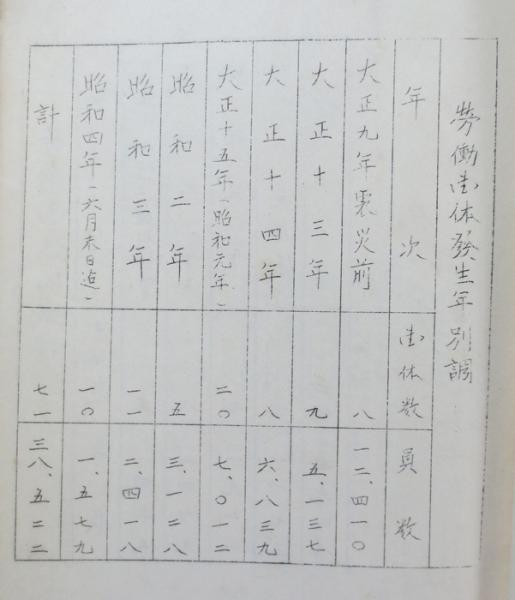 勞働団体發生年別調
年次 団体数 員数
大正九年震災前 八 一二、四一〇
大正十三年 九 五、一三七
大正十四年 八 六、八三九
大正十五年(昭和元年) 二〇 七、〇一二
昭和二年 五 三、一二八
昭和三年 一一 二、四一八
昭和四年(六月末日迄) 一〇 一、五七九
計 七一 三八、五二二